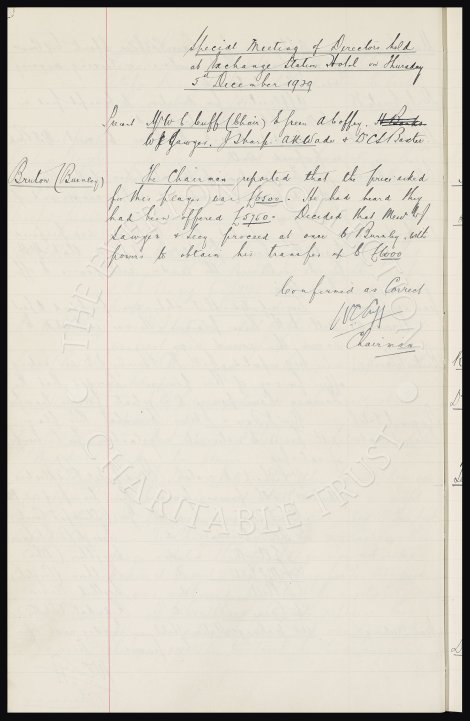 Special Meeting of Directors held
at Exchange Station Hotel on Thursday
5th December 1929
Present Mr W C Cuff (Chair) E Green A Coffey
W J Sawyer, J Sharp A H Wade & Dr C S Baxter
Bruton (Burnley)
The Chairman reported that the price asked
for this player was £6500. He had heard they
had been offered £5760. Decided that Messrs
Sawyer & Secy. proceed at once to Burnley with
powers to obtain his transfer up to £6000
Confirmed as Correct
WC Cuff
Chairman
CHARITABLE TRUST